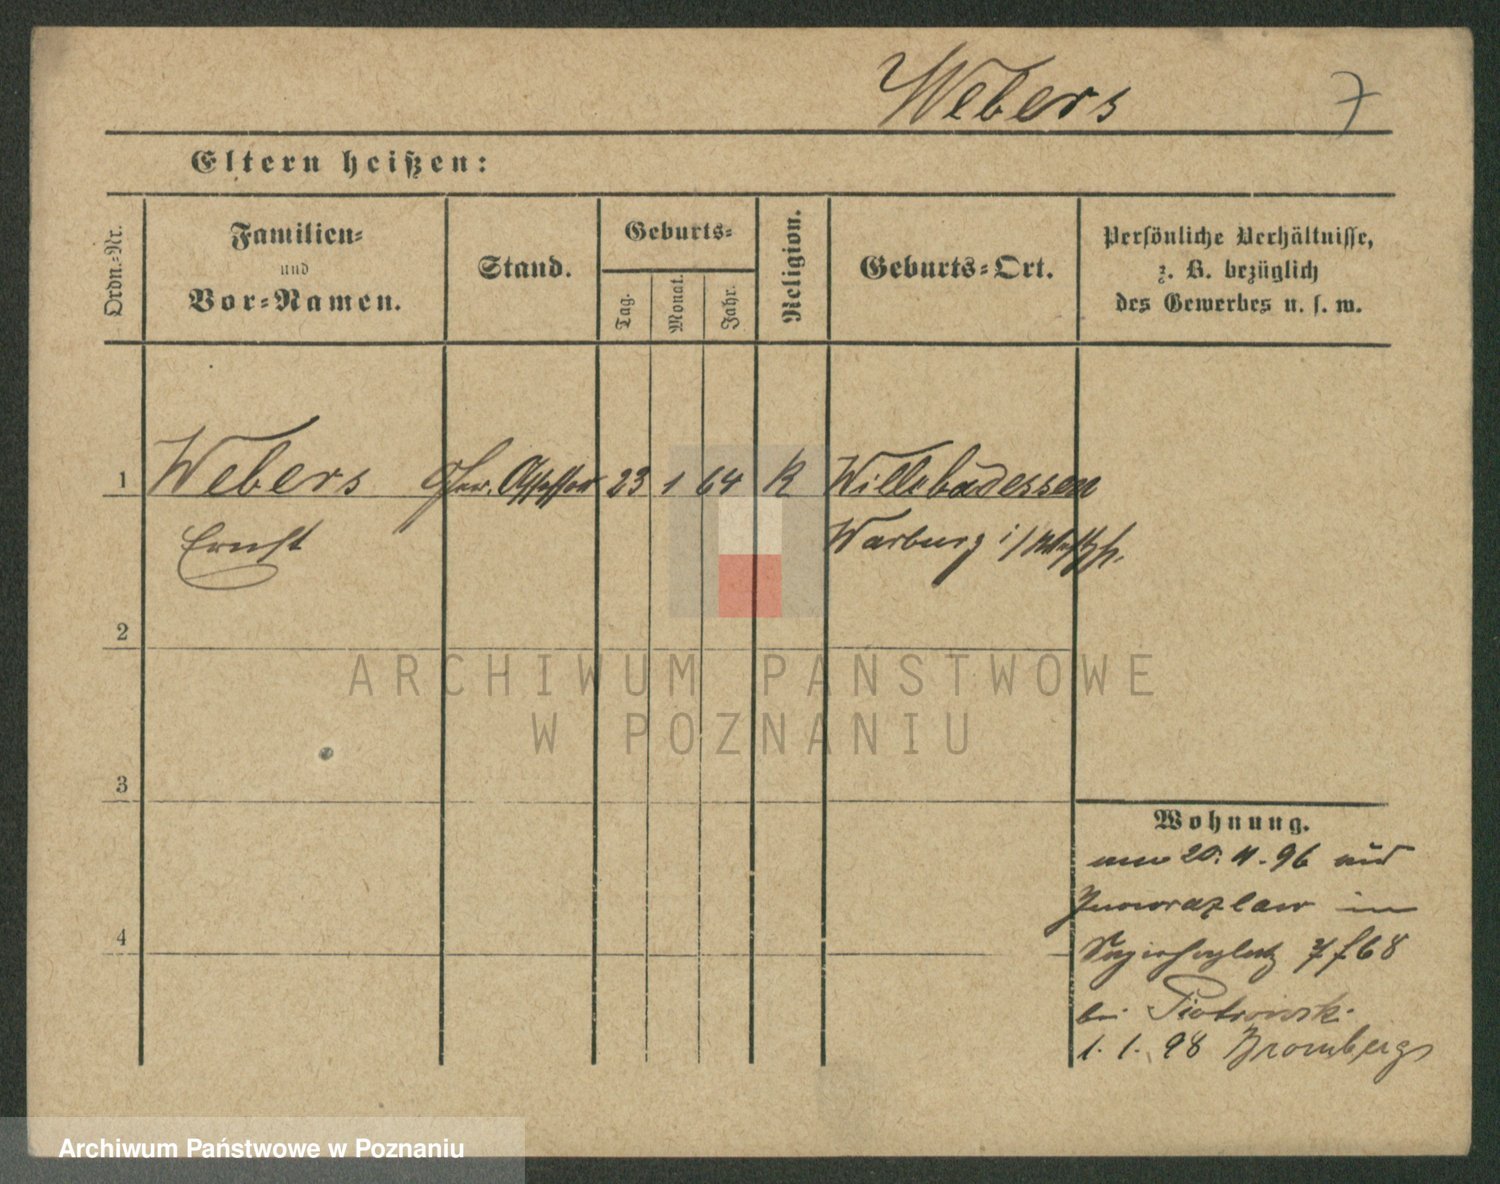 Webers 7
Eltern heißen:
Ordn.=Nr.
Familien=
und
Vor=Namen.
Stand.
Geburts=
Tag.
Monat.
Jahr.
Religion.
Geburts=Ort.
Persönliche Verhältnisse,
z. B. bezüglich
des Gewerbes u. s. w.
1 Webers Assessor 23 1 64 K Willebadessen
Ernst Warburg i/Westph.
2
ARCHIWUM PAŃSTWOWE
W POZNANIU
3
Wohnung.
20. 11. 96 aus
Inowrazlaw in
7 f 68
4
bei Piotrowski
1. 1. 98 Bromberg
Archiwum Państwowe w Poznaniu